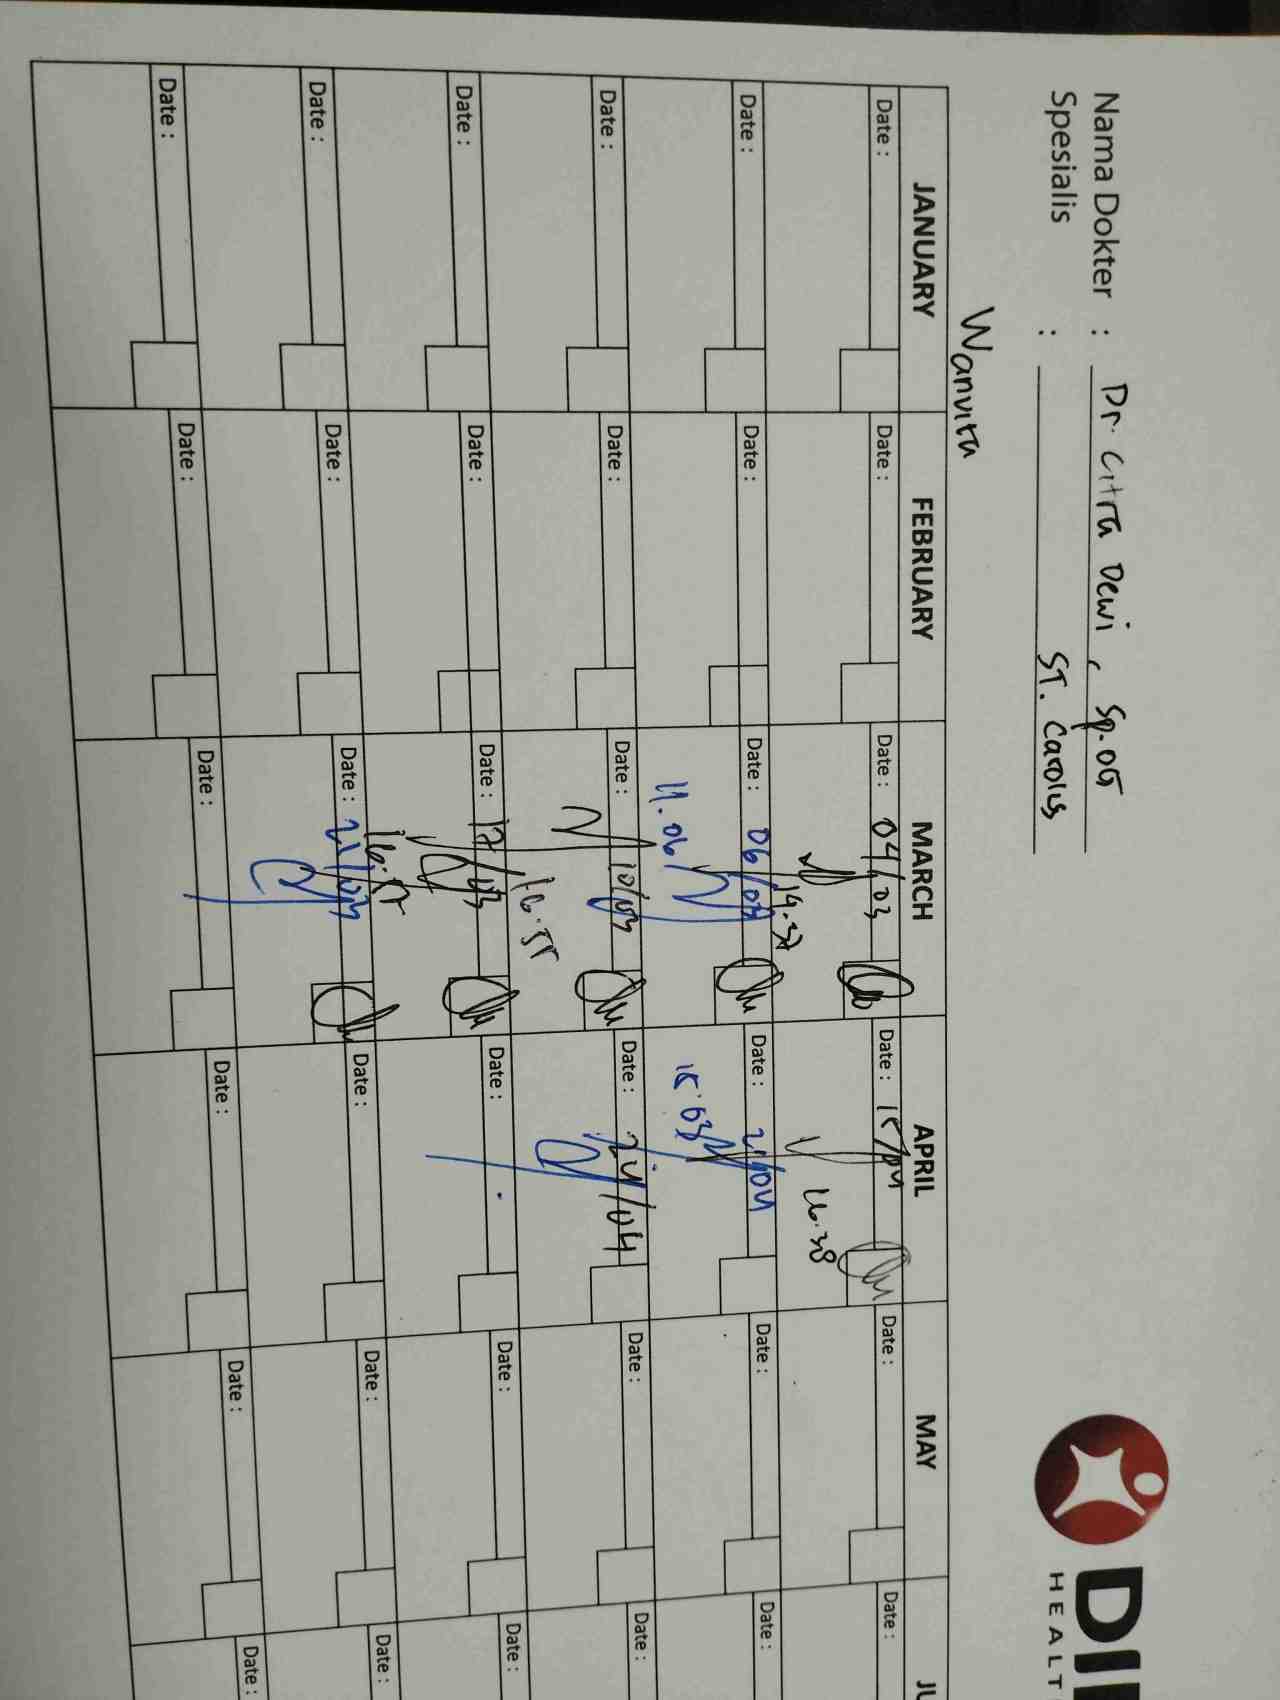 Nama Dokter : Dr. Citra Dewi, Sp.OG
Spesialis : ST. Carolus
DI
HEALT
Wanvita
JANUARY FEBRUARY MARCH APRIL MAY JU
Date : Date : Date : 04/03 Date : 15/04 Date : Date :
14.37 16.38
Date : Date : Date : 06/03 Date : 21/04 Date : Date :
11.06 15.03
Date : Date : Date : 10/03 Date : 24/04 Date : Date :
16.55
Date : Date : Date : 17/03 Date : Date : Date :
16.57
Date : Date : Date : 21/03 Date : Date : Date :
Date : Date : Date : Date : Date : Date :